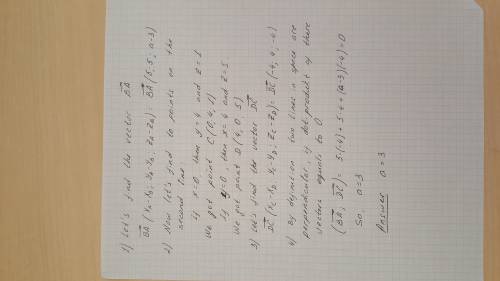 1) Let's find the vector BA
BA (xA-xB; yA-yB; zA-zB) BA (5; 5; a-3)
2) Now let's find to points on the
second line
if x=0, then y=4 and z=1
We got point C(0,4,1)
If y=0, then x=4 and z=5
We got point D(4,0,5)
3) Let's find the vector DC
DC (xC-xD; yC-yD; zC-zD) = DC (-4; 4; -4)
4) By definition two lines in space are
perpendicular, if dot-product of there
vectors equals to 0
(BA; DC) = 5·(-4) + 5·4 + (a-3)(-4) = 0
So, a=3
Answer a=3